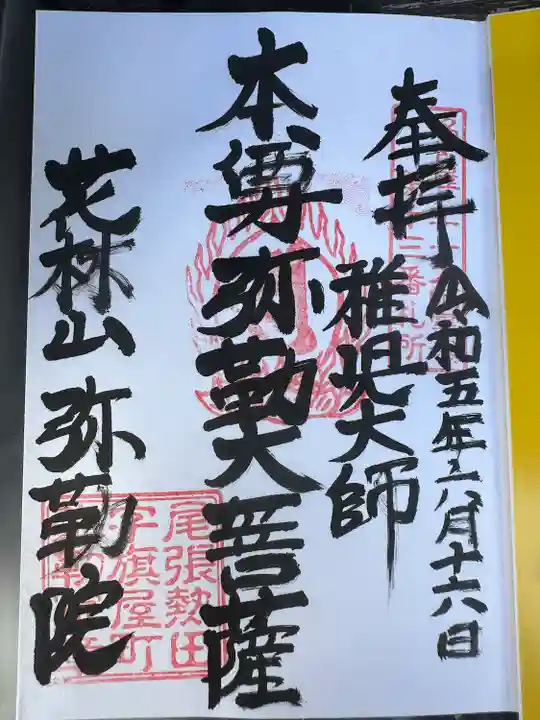 奉拝
令和五年六月十六日
稚児大師
本尊弥勒大菩薩
花林山 弥勒院
三番札所
尾張熱田
字旗屋町